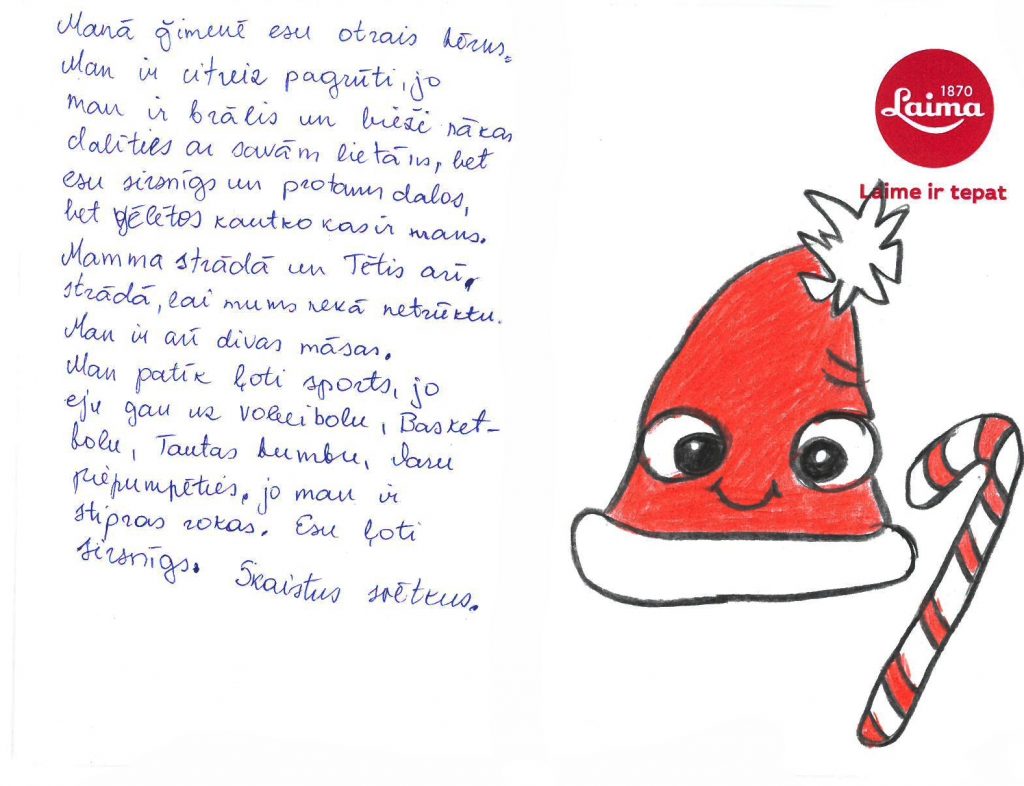 Manā ģimenē esu otrais bērns.
Man ir citreiz pagrūti, jo
man ir brālis un bieži nākas
dalīties ar savām lietām, bet
esu sirsnīgs un protams dalos,
bet gēlētos kautko kas ir mans.
Mamma strādā un Tētis arī,
strādā, lai mums nekā netrūktu.
Man ir arī divas māsas.
Man patīk ļoti sports, jo
eju gan uz voleibolu, Basket-
bolu, Tautas bumbu, daru
piepumpēties, jo man ir
stipras rokas. Esu ļoti
sirsnīgs. Skaistus svētkus.
1870
Laima
Laime ir tepat